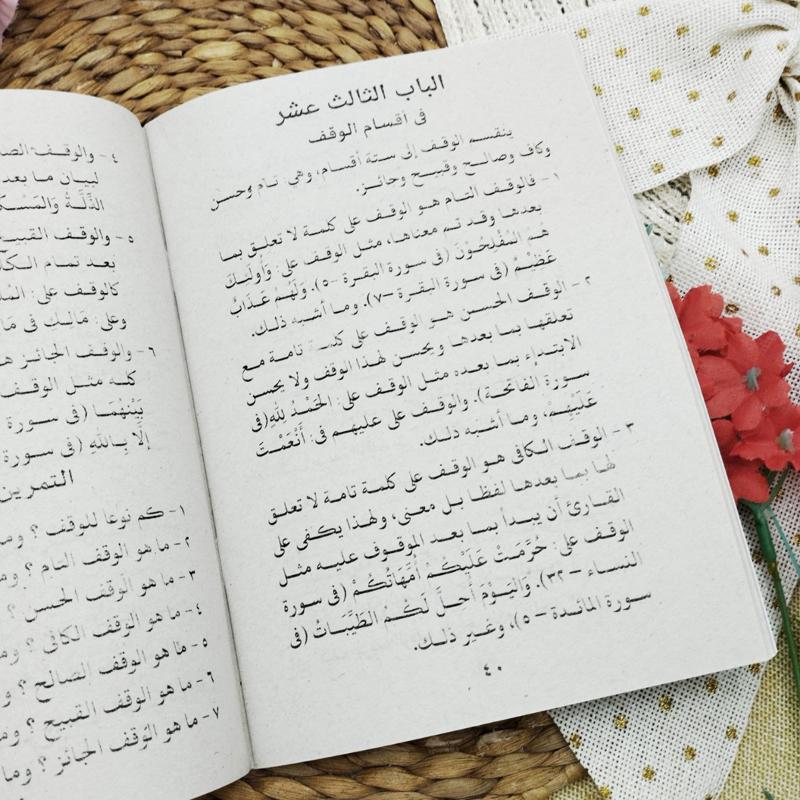 الباب الثالث عشر
فى اقسام الوقف
ينقسم الوقف إلى ستة أقسام، وهي: تام وحسن
وكاف وصالح وقبيح وجائز.
١ – فالوقف التام هو الوقف على كلمة لا تعلق بما
بعدها وقد تم معناها، مثل الوقف على: وَأُولَئِكَ
هُمُ المُفْلِحُوْنَ (فى سورة البقرة –٥). وَلَهُمْ عَذَابٌ
عَظِيْمٌ (فى سورة البقرة –٧). وما أشبه ذلك.
٢ – الوقف الحسن هو الوقف على كلمة تامة مع
تعلقها بما بعدها ويحسن لهذا الوقف ولا يحسن
الابتداء بما بعده مثل الوقف على: الحَمْدُ لِلّهِ (فى
سورة الفاتحة). والوقف على عليهم فى: أَنْعَمْتَ
عَلَيْهِمْ، وما أشبه ذلك.
٣ – الوقف الكافى هو الوقف على كلمة تامة لا تعلق
لها بما بعدها لفظا بل معنى، ولهذا يكفى على
القارئ أن يبدأ بما بعد الموقوف عليه مثل
الوقف على: حُرِّمَتْ عَلَيْكُمْ أُمَّهَاتُكُمْ (فى سورة
النساء – ٢٣). وَاليَوْمَ أُحِلَّ لَكُمُ الطَّيِّبَاتُ (فى
سورة المائدة – ٥)، وغير ذلك.
٤٠
٤ – والوقف
لبيان ما بعد
الذِّلَّةُ
٥ – والوقف القبيح
بعد تمام
كالوقف على:
وعلى: مَالِك فى
٦ – والوقف الجائز
كله مثل الوقف
بَيْنَهُمَا (فى سورة
إِلَّا بِاللهِ (فى سورة
التمرين
١– كم نوعا للوقف ؟
٢– ما هو الوقف التام ؟
٣– ما هو الوقف الحسن ؟
٤– ما هو الوقف الكافى ؟
٥– ما هو الوقف الصالح ؟
٦– ما هو الوقف القبيح ؟
٧– ما هو الوقف الجائز ؟ وما